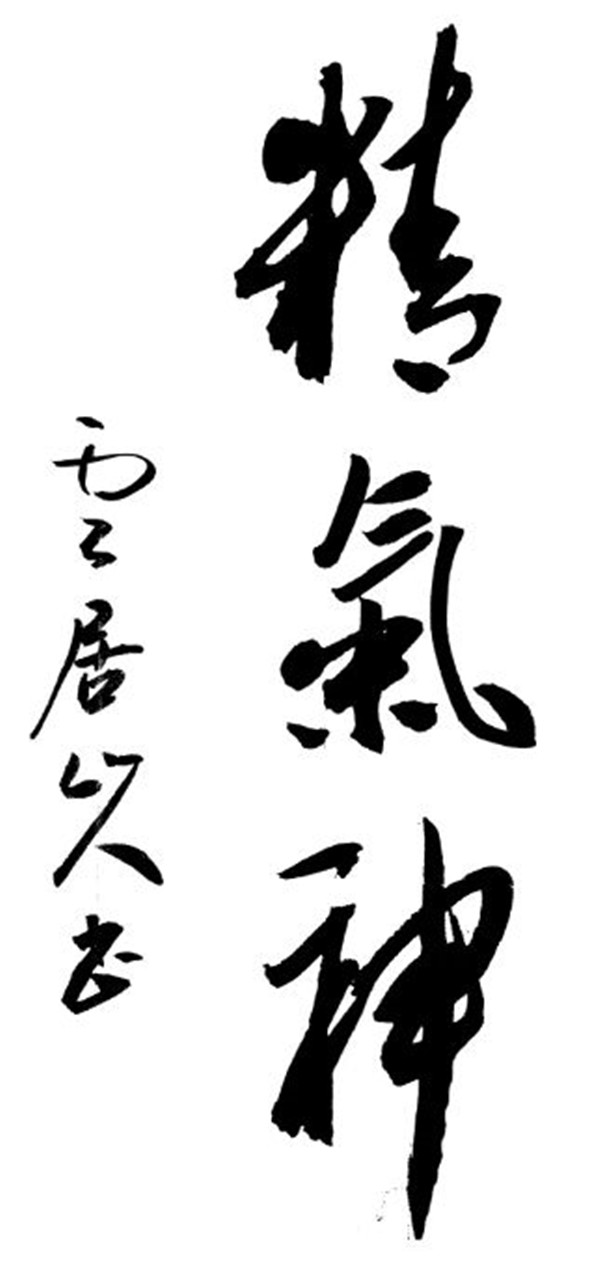 精氣神
雲居山人書